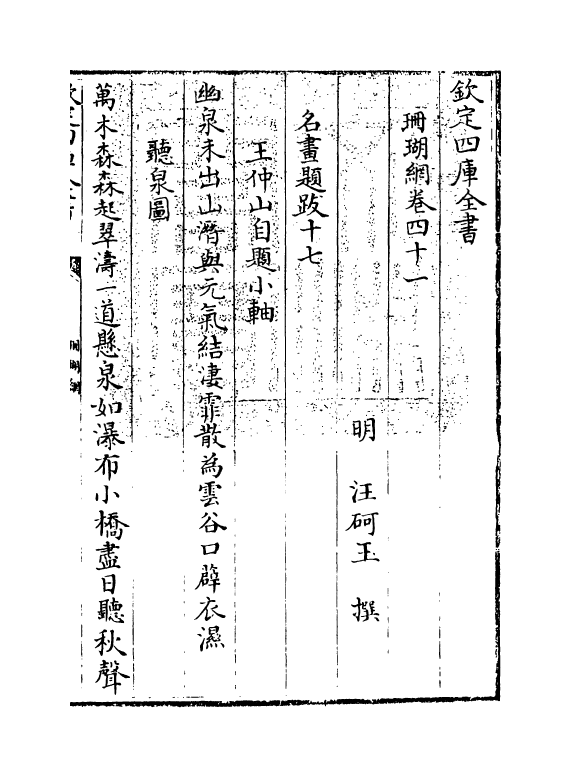 欽定四庫全書
珊瑚網卷四十一
明　汪砢玉　撰
名畫題跋十七
王仲山自題小軸
幽泉未出山潛與元氣結淒霏散為雲谷口薜衣濕
聽泉圖
萬木森森起翠濤一道懸泉如瀑布小橋盡日聽秋聲